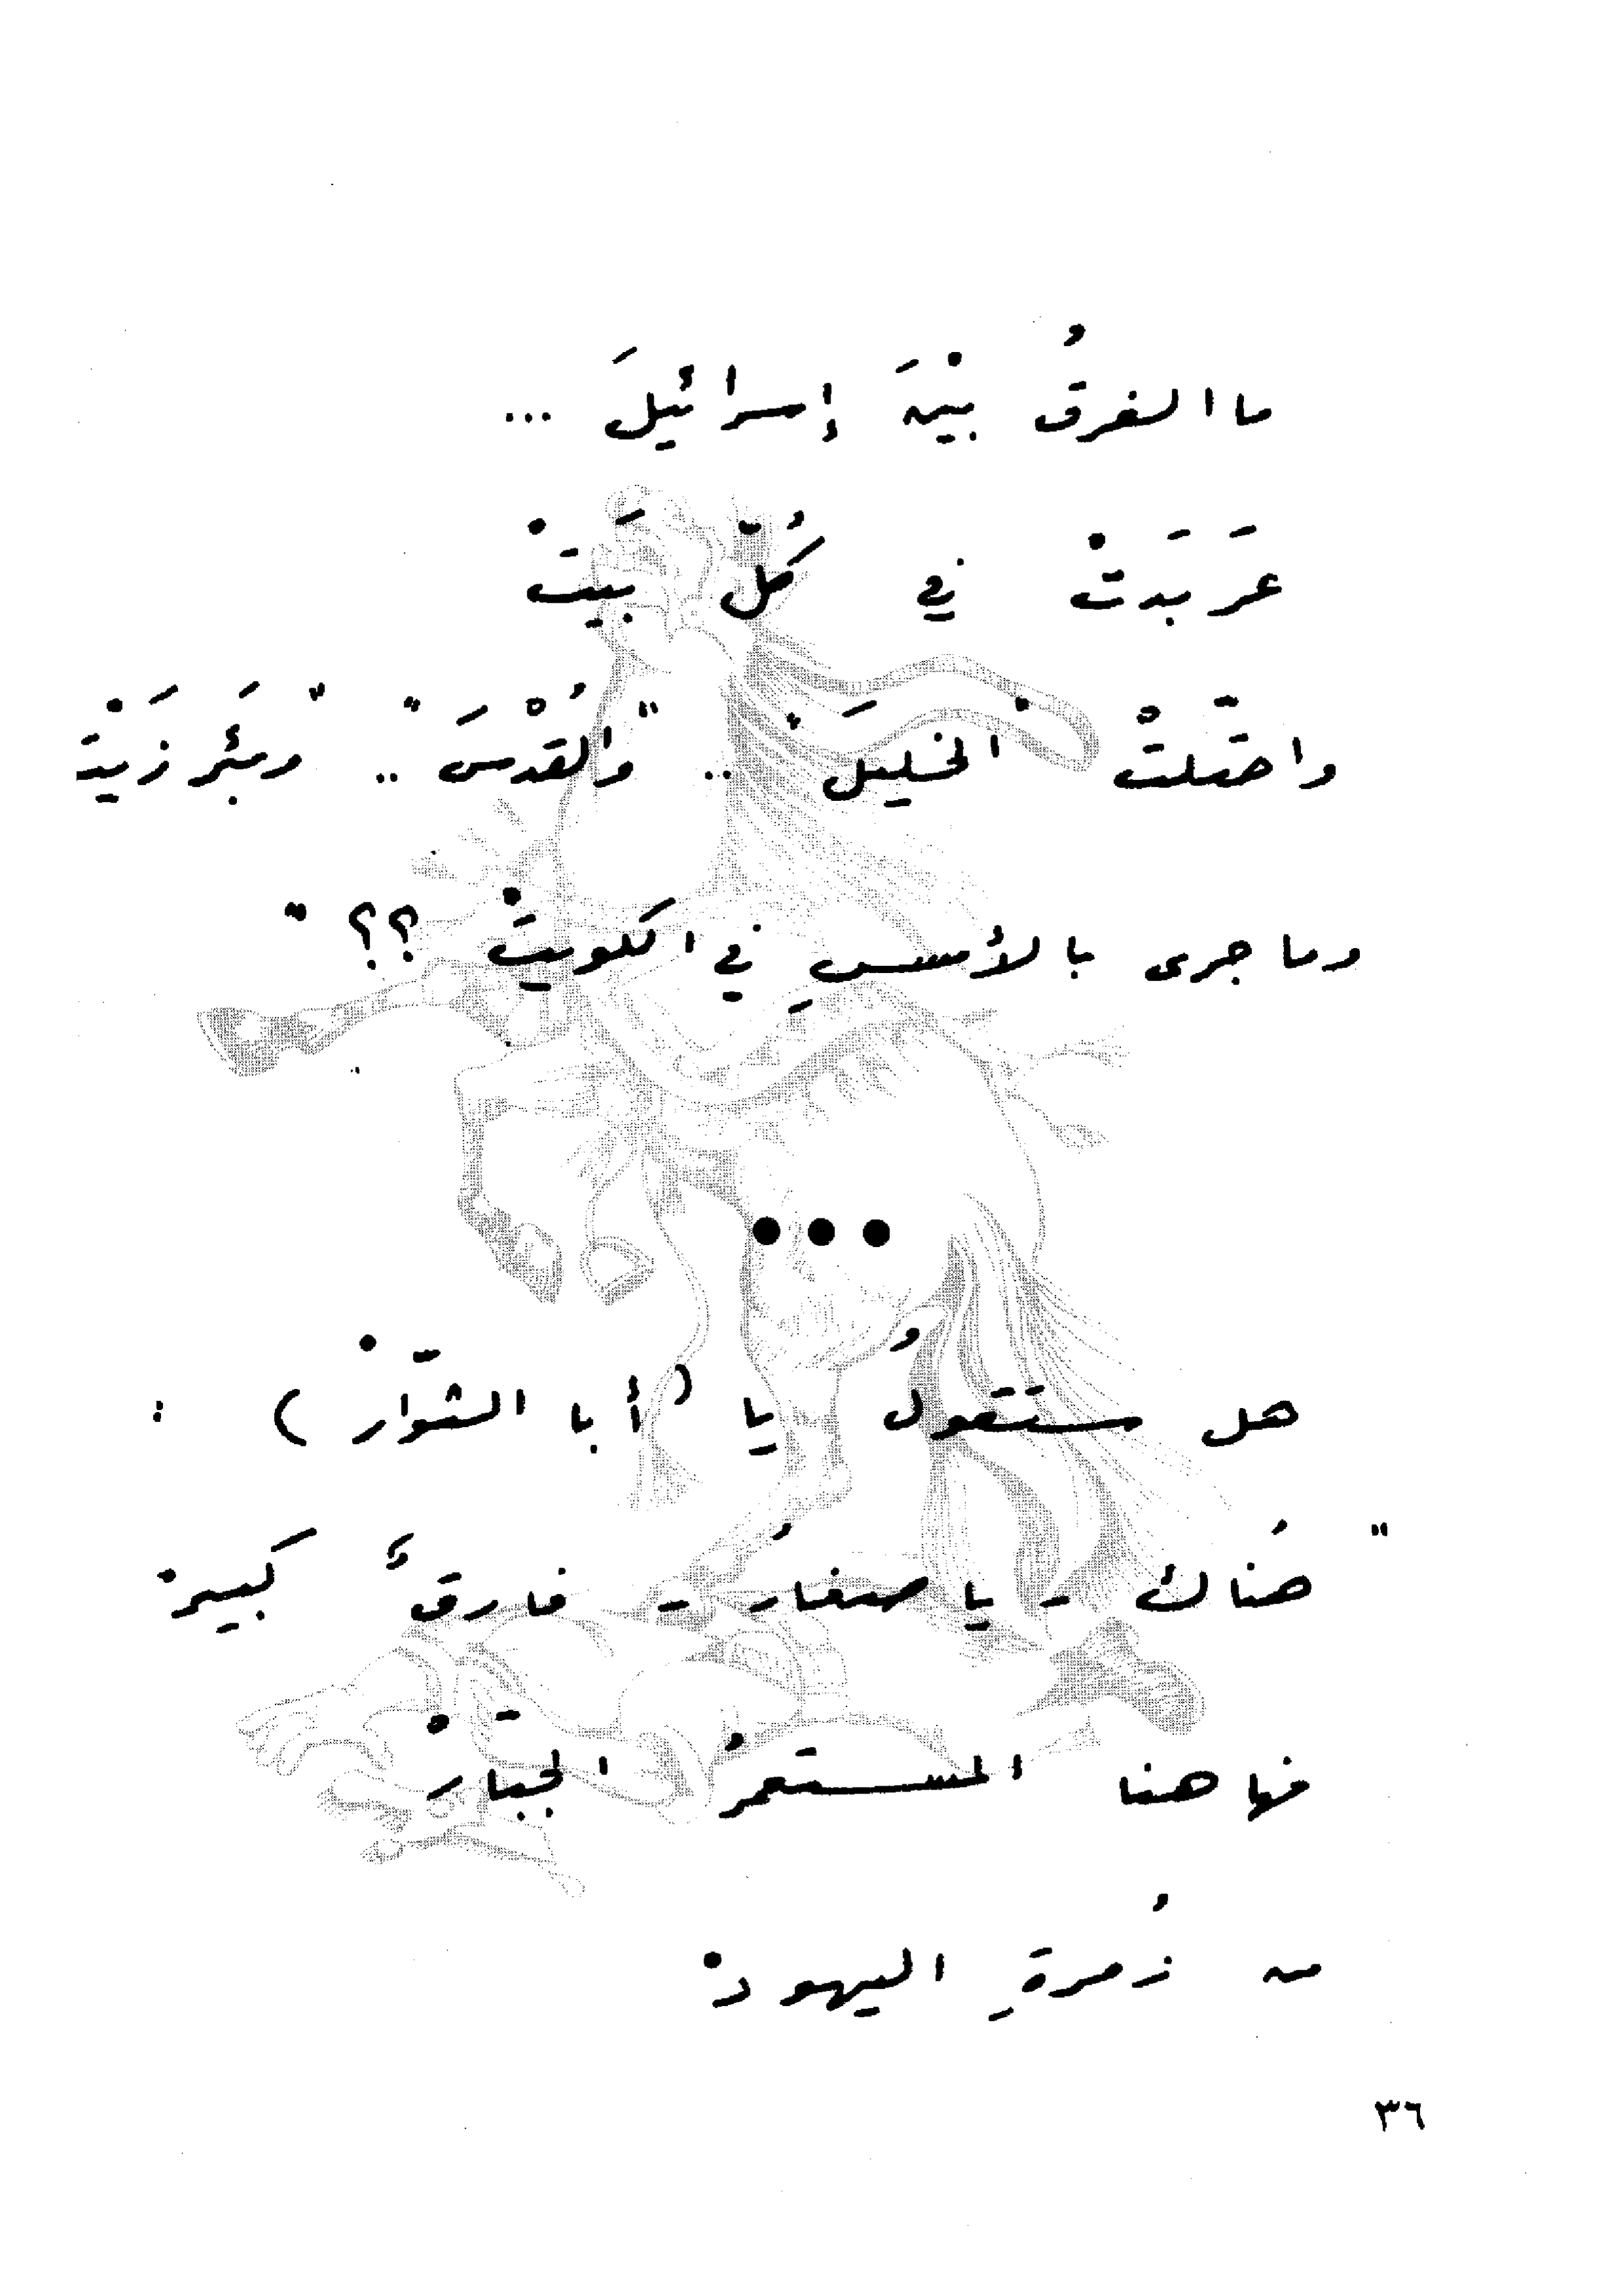 ما الفرقُ بيْنَ إسرائيلَ ...
عَرَبَدتْ في كُلِّ بَيتْ
واحتّلتْ "الخليلَ" .. "والقُدْسَ" .. "وبئَر زَيْتْ
وما جرى بالأمسِ في الكويتْ ؟؟ "
•••
هل ستقولُ يا (أبا الثوّارْ) :
" هُناك - يا صغارُ - فارقٌ كبيرْ
فها هنا المستعمرُ الجبّارْ
من زُمرةِ اليهودْ
٣٦